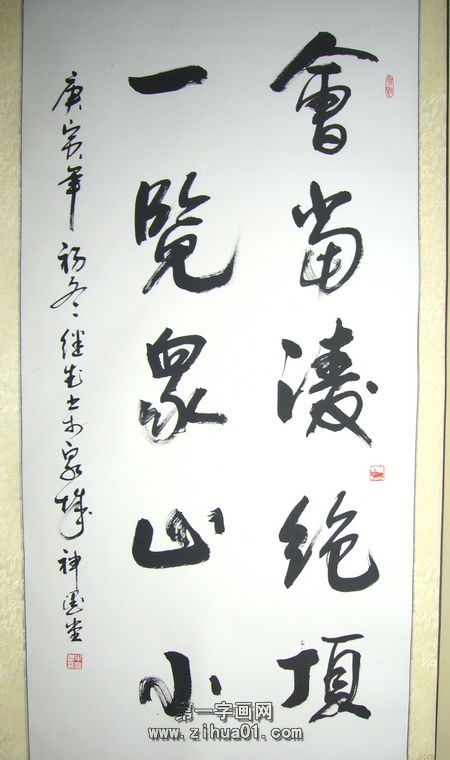 會當凌绝頂
一覽眾山小
庚寅年初冬继先书於泉城神墨堂
第一字画网
www.zihua01.com